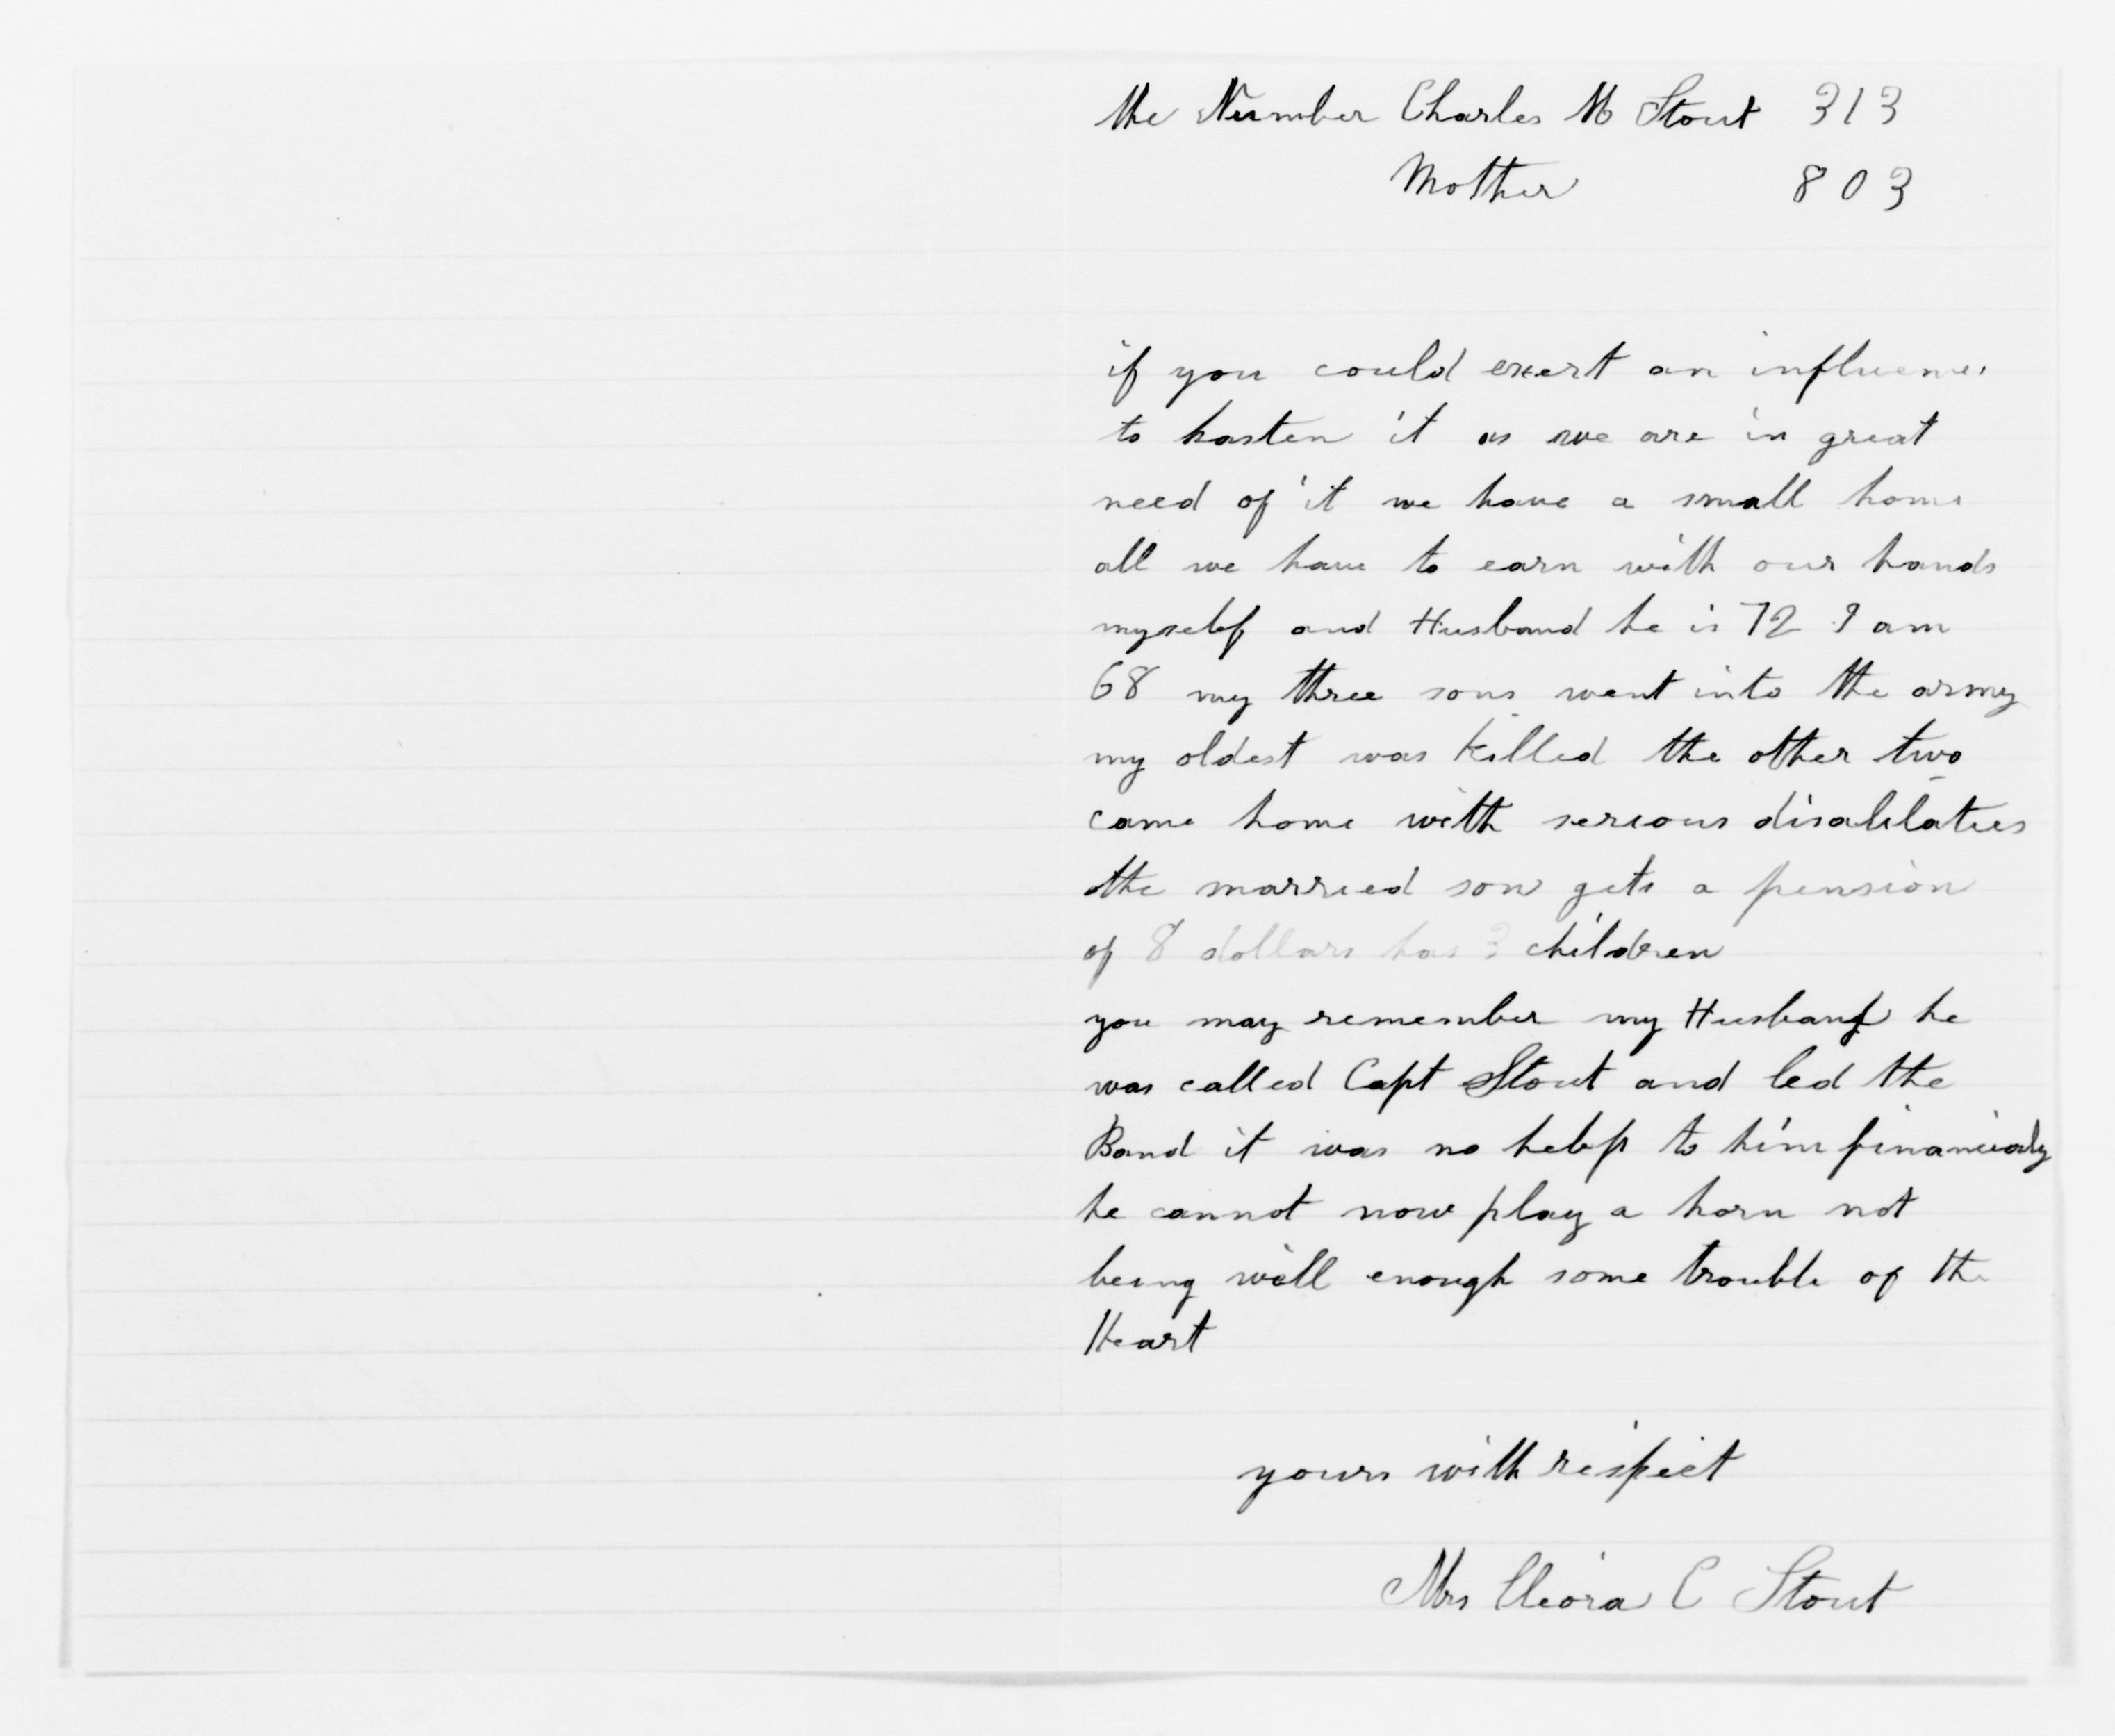 the Number Charles M Stout 313
Mother 803
if you could exert an influence
to hasten it as we are in great
need of it we have a small home
all we have to earn with our hands
myself and Husband he is 72 I am
68 my three sons went into the army
my oldest was killed the other two
came home with serious disabilaties
the married son gets a pension
of 8 dollars has 3 children
you may remember my Husband he
was called Capt Stout and led the
Band it was no help to him financialy
he cannot now play a horn not
being well enough some trouble of the
Heart
yours with respect
Mrs Cleora C Stout